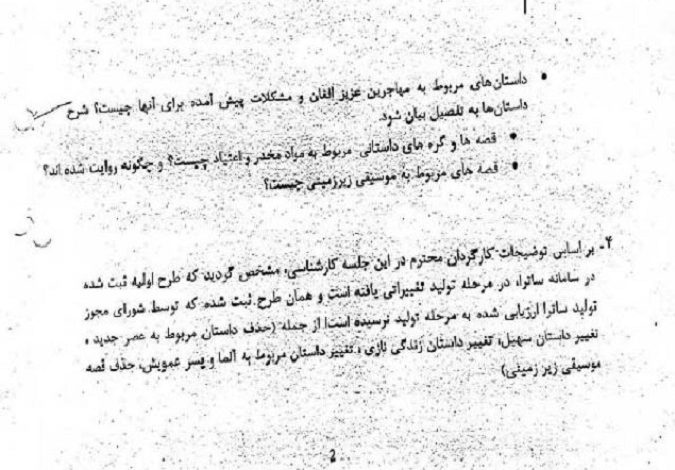 • داستان های مربوط به مهاجرین عزیز افغان و مشکلات پیش آمده برای آنها چیست؟ شرح
داستان‌ها به تفصیل بیان شود.
• قصه ها و گره های داستانی مربوط به مواد مخدر و اعتیاد چیست؟ و چگونه روایت شده اند؟
• قصه های مربوط به موسیقی زیرزمینی چیست؟
۴- بر اساس توضیحات کارگردان محترم در این جلسه کارشناسی، مشخص گردید که طرح اولیه ثبت شده
در سامانه ساترا، در مرحله تولید تغییراتی یافته است و همان طرح ثبت شده که توسط شورای مجوز
تولید ساترا ارزیابی شده به مرحله تولید نرسیده است! از جمله (حذف داستان مربوط به عصر جدید ،
تغییر داستان سهیل، تغییر داستان زندگی نازی ، تغییر داستان مربوط به آلما و پسر عمویش، حذف قصه
موسیقی زیر زمینی)
2